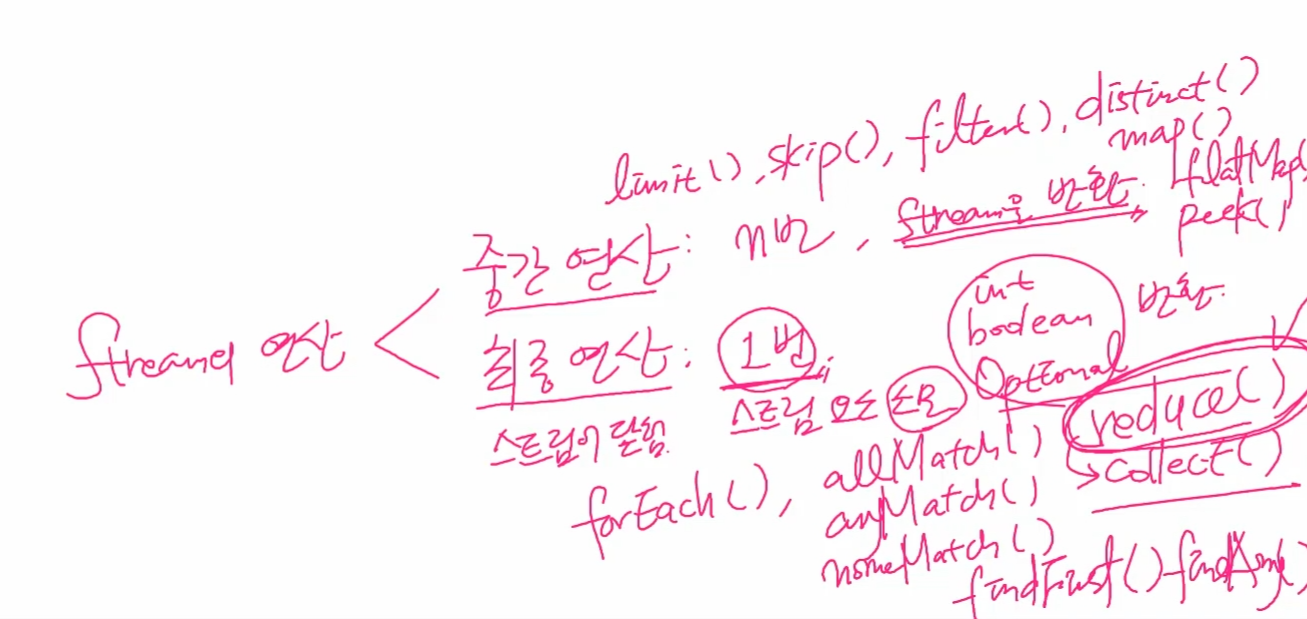 limit(), skip(), filter(), distinct()
map()
flatMap()
peek()
중간 연산: n번, Stream을 반환.
Stream 연산
최종 연산: 1번, int boolean Optional 반환.
스트림 요소 소모
스트림이 닫힘.
reduce()
collect()
forEach(), allMatch()
anyMatch()
noneMatch()
findFirst() findAny()